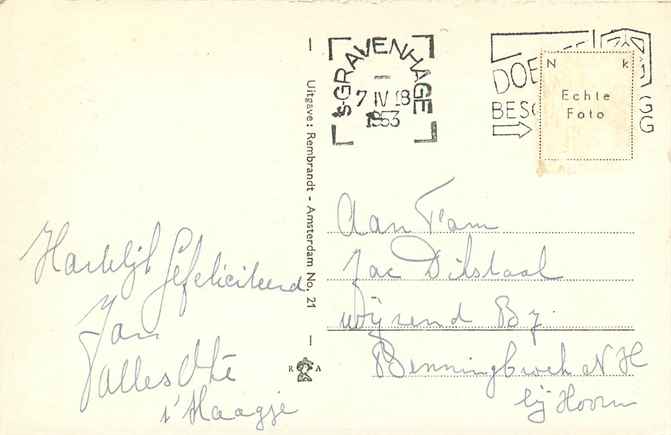 's-GRAVENHAGE
7 IV 18
1953
DOE
BES
GG
N k
Echte
Foto
Uitgave: Rembrandt - Amsterdam No. 21
R A
Hartelijk Gefeliciteerd
Jan
t'Haagje
Aan Fam
Jac Dilstaal
Wijzend B 7.
Benningbroek N H
bij Hoorn